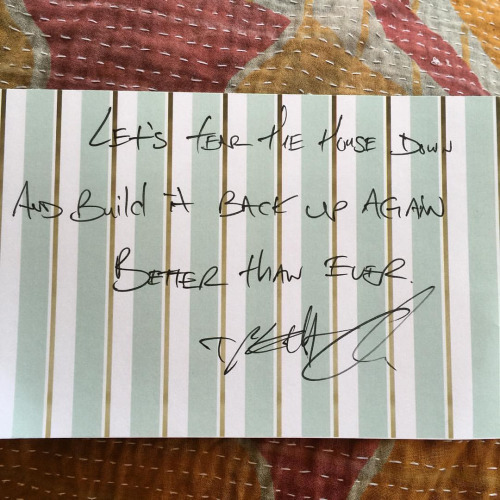 LET'S TEAR THE HOUSE DOWN
AND Build it BACK UP AGAIN
BETTER THAN EVER.